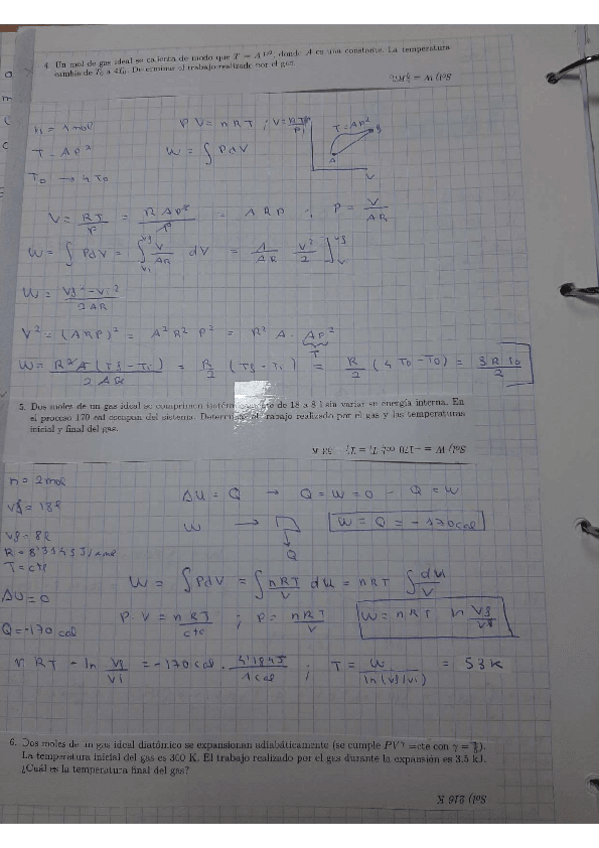 4. Un mol de gas ideal se calienta de modo que T = AP², donde A es una constante. La temperatura
cambia de T₀ a 4T₀. Determine el trabajo realizado por el gas.
Sol) W =
n = 1 mol
PV = nRT ; V =
T = AP²
T = AP²
W = ∫ PdV
A
T₀ → 4T₀
V
V = RT/P = RAP²/P = ARP ; P = V/AR
W = ∫ PdV = ∫ V/AR dV = 1/AR V²/2 ]
W = Vf² - Vi² / 2AR
V² = (ARP)² = A²R²P² = R² A · AP²
T
W = R²A (Tf - Ti) / 2AR = R/2 (Tf - Ti) = R/2 (4T₀ - T₀) = 3RT₀/2
5. Dos moles de un gas ideal se comprimen de 18 a 8 l sin variar su energía interna. En
el proceso 170 cal escapan del sistema. Determine el trabajo realizado por el gas y las temperaturas
inicial y final del gas.
Sol) W = −170 cal; Tᵢ = T_f = 53 K
n = 2 mol
ΔU = Q → Q - W = 0 - Q = W
Vf = 18l
W → W = Q = -170 cal
Q
Vf = 8l
R = 8'3145 J/
T = cte
W = ∫ PdV = ∫ nRT/V dV = nRT ∫ dV/V
ΔU = 0
P · V = nRT ; P = nRT/V
cte
W = nRT ln
Q = -170 cal
nRT - ln Vf/Vi = -170 cal · 4'184J/1cal ; T = W / ln(Vf/Vi) = 53K
6. Dos moles de un gas ideal diatómico se expansionan adiabáticamente (se cumple PVᵞ =cte con γ =
La temperatura inicial del gas es 300 K. El trabajo realizado por el gas durante la expansión es 3.5 kJ.
¿Cuál es la temperatura final del gas?
Sol) 216 K